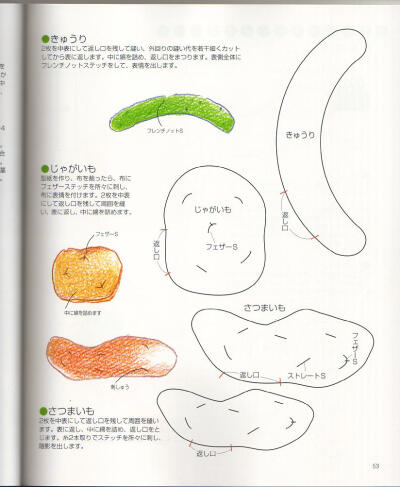 ●きゅうり
2枚を中表にして返し口を残して縫い、外回りの縫い代を若干細くカット
してから表に返します。中に綿を詰め、返し口をまつります。表側全体に
フレンチノットステッチをして、表情を出します。
フレンチノットS
きゅうり
返し口
●じゃがいも
型紙を作り、布を裁ったら、布に
フェザーステッチを所々に刺し、
布に表情を付けます。2枚を中表
にして返し口を残して周囲を縫
い、表に返し、中に綿を詰めます。
じゃがいも
フェザーS
返し口
フェザーS
中に綿を詰めます
さつまいも
フェザーS
返し口
ストレートS
刺しゅう
●さつまいも
2枚を中表にして返し口を残して周囲を縫い
ます。表に返し、中に綿を詰め、返し口をと
じます。糸2本取りでステッチを所々に刺し、
陰影を出します。
返し口
53